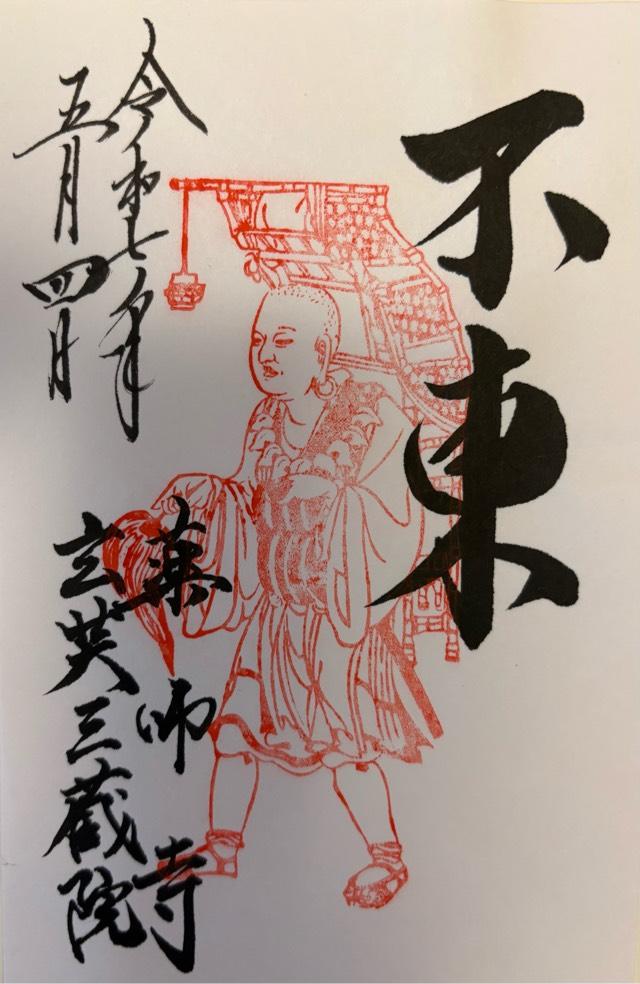 不東
令和七年
五月四日
薬師寺
玄奘三蔵院